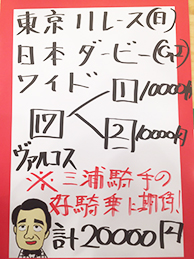 東京11レース(日)
日本ダービー(GI)
ワイド 1 10000円
17 2 10000円
ヴァルコス
※三浦騎手の
好騎乗に期待!
計20000円